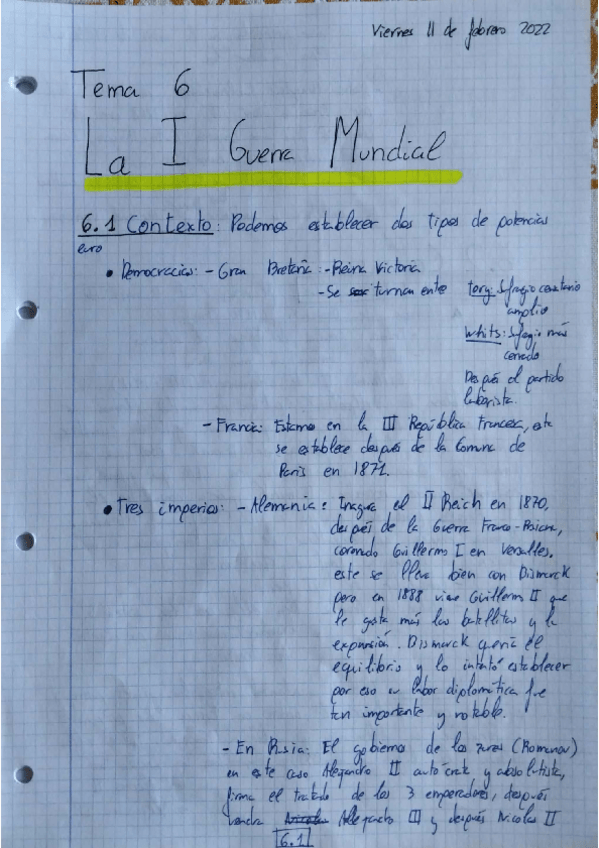 Viernes 11 de febrero 2022
Tema 6
La I Guerra Mundial
6.1 Contexto: Podemos establecer dos tipos de potencias
euro
• Democracias: - Gran Bretaña: - Reina Victoria
- Se turnan ente
tory: Sufragio censitario
amplio
whits: Sufragio más
cerrado
Después el partido
laborista.
- Francia: Estamos en la III República Francesa, esta
se establece después de la Comuna de
Paris en 1871.
• Tres imperios: - Alemania: Inagura el II Reich en 1870,
después de la Guerra Franco-Prusiana,
coronado Guillermo I en Versalles.
este se lleva bien con Bismarck
pero en 1888 viene Guillermo II que
le gusta más las batallitas y la
expansión. Bismarck quería el
equilibrio y lo intentó establecer
por eso su labor diplomática fue
tan importante y notable.
- En Rusia: El gobierno de los zares (Romanov)
en este caso Alejandro II autócrata y absolutista,
firma el tratado de los 3 emperadores, después
vendra Alejandro III y después Nicolas II
6.1